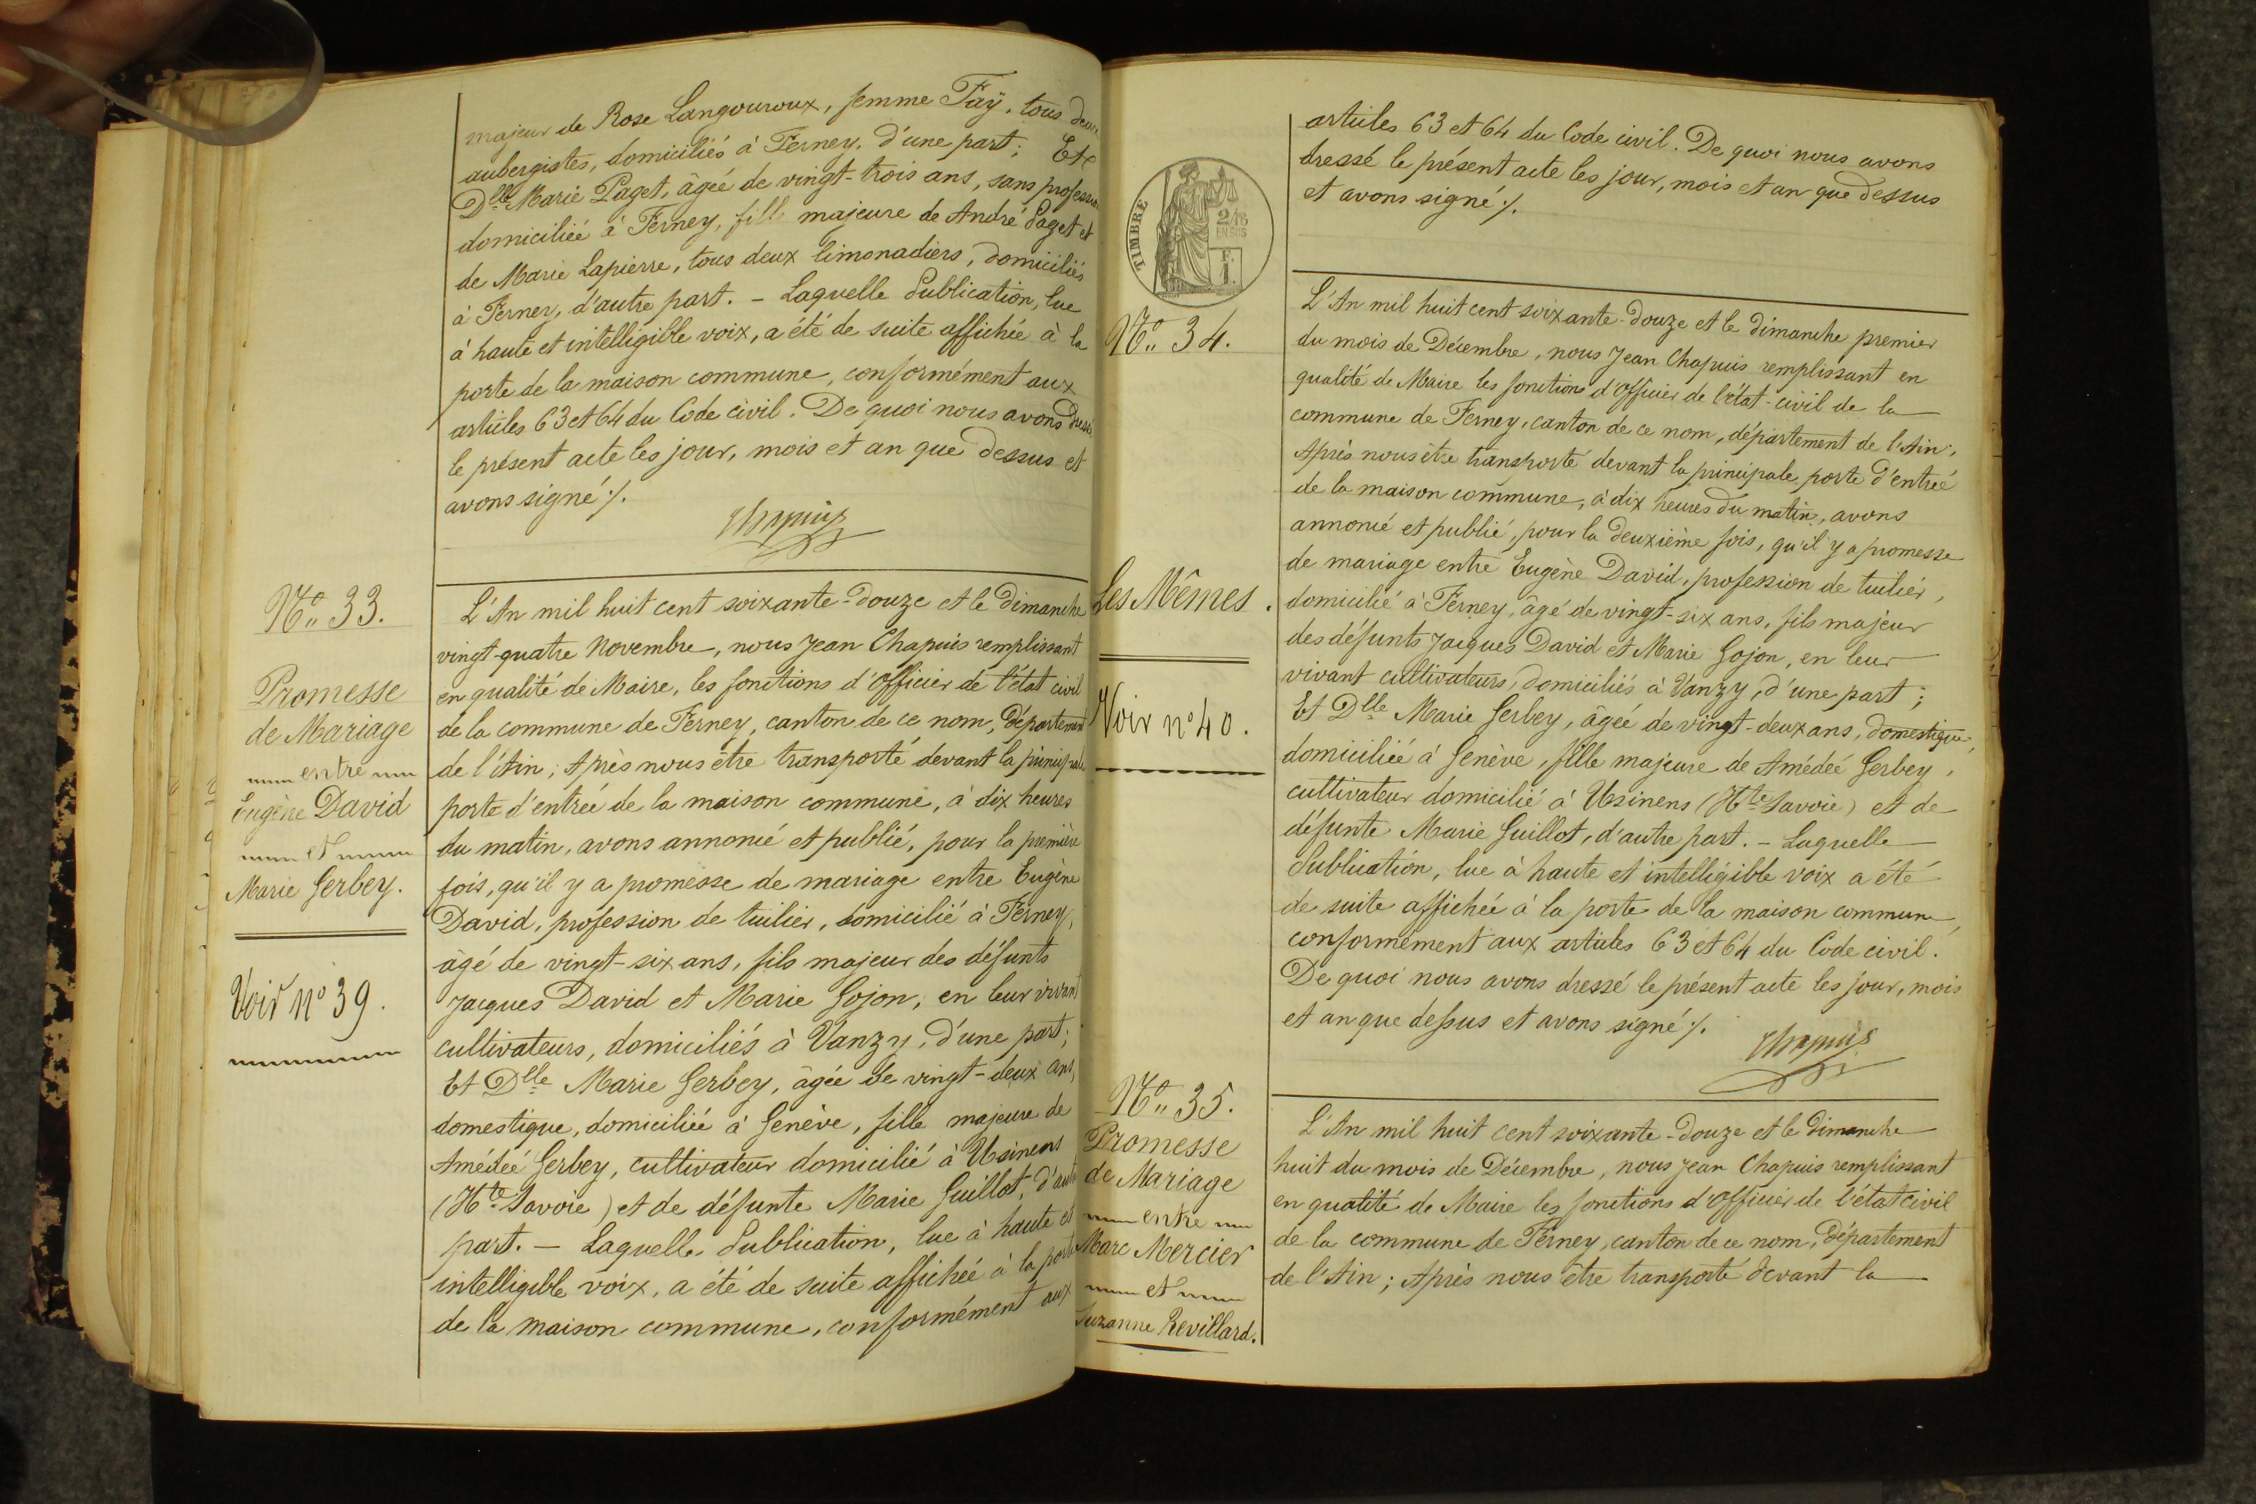 majeur de Rose Langouroux, femme Faÿ, tous deux
aubergistes, domiciliés à Ferney, d'une part; Et
Dlle Marie Paget, âgée de vingt-trois ans, sans profession
domiciliée à Ferney, fille majeure de André Paget et
de Marie Lapierre, tous deux limonadiers, domiciliés
à Ferney, d'autre part. - Laquelle Publication, lue
à haute et intelligible voix, a été de suite affichée à la
porte de la maison commune, conformément aux
articles 63 et 64 du Code civil. De quoi nous avons dressé
le présent acte les jour, mois et an que dessus et
avons signé ./.
Chapuis
No 33.
Promesse
de Mariage
entre
Eugène David
et
Marie Gerbey.
Voir no 39.
L'An mil huit cent soixante-douze et le dimanche
vingt-quatre Novembre, nous Jean Chapuis remplissant
en qualité de Maire, les fonctions d'Officier de l'état civil
de la commune de Ferney, canton de ce nom, département
de l'Ain; Après nous être transporté devant la principale
porte d'entrée de la maison commune, à dix heures
du matin, avons annoncé et publié, pour la première
fois, qu'il y a promesse de mariage entre Eugène
David, profession de tuilier, domicilié à Ferney,
âgé de vingt-six ans, fils majeur des défunts
Jacques David et Marie Gojon, en leur vivant
cultivateurs, domiciliés à Vanzy, d'une part;
Et Dlle Marie Gerbey, âgée de vingt-deux ans,
domestique, domiciliée à Genève, fille majeure de
Amédée Gerbey, cultivateur domicilié à Usinens
(Hte Savoie) et de défunte Marie Guillot, d'autre
part. - Laquelle Publication, lue à haute et
intelligible voix, a été de suite affichée à la porte
de la maison commune, conformément aux
articles 63 et 64 du Code civil. De quoi nous avons
dressé le présent acte les jour, mois et an que dessus
et avons signé ./.
TIMBRE
2/10
EN SUS
F.
1.
No 34.
Les Mêmes.
Voir no 40.
L'An mil huit cent soixante-douze et le dimanche premier
du mois de Décembre, nous Jean Chapuis remplissant en
qualité de Maire les fonctions d'Officier de l'état-civil de la
commune de Ferney, canton de ce nom, département de l'Ain;
Après nous être transporté devant la principale porte d'entrée
de la maison commune, à dix heures du matin, avons
annoncé et publié, pour la deuxième fois, qu'il y a promesse
de mariage entre Eugène David, profession de tuilier,
domicilié à Ferney, âgé de vingt-six ans, fils majeur
des défunts Jacques David et Marie Gojon, en leur
vivant cultivateurs, domiciliés à Vanzy, d'une part;
Et Dlle Marie Gerbey, âgée de vingt-deux ans, domestique,
domiciliée à Genève, fille majeure de Amédée Gerbey,
cultivateur domicilié à Usinens (Hte Savoie) et de
défunte Marie Guillot, d'autre part. - Laquelle
Publication, lue à haute et intelligible voix a été
de suite affichée à la porte de la maison commune
conformément aux articles 63 et 64 du Code civil.
De quoi nous avons dressé le présent acte les jour, mois
et an que dessus et avons signé ./.
Chapuis
No 35.
Promesse
de Mariage
entre
Marc Mercier
et
Suzanne Revillard.
L'An mil huit cent soixante-douze et le dimanche
huit du mois de Décembre, nous Jean Chapuis remplissant
en qualité de Maire les fonctions d'Officier de l'état civil
de la commune de Ferney, canton de ce nom, département
de l'Ain; Après nous être transporté devant la